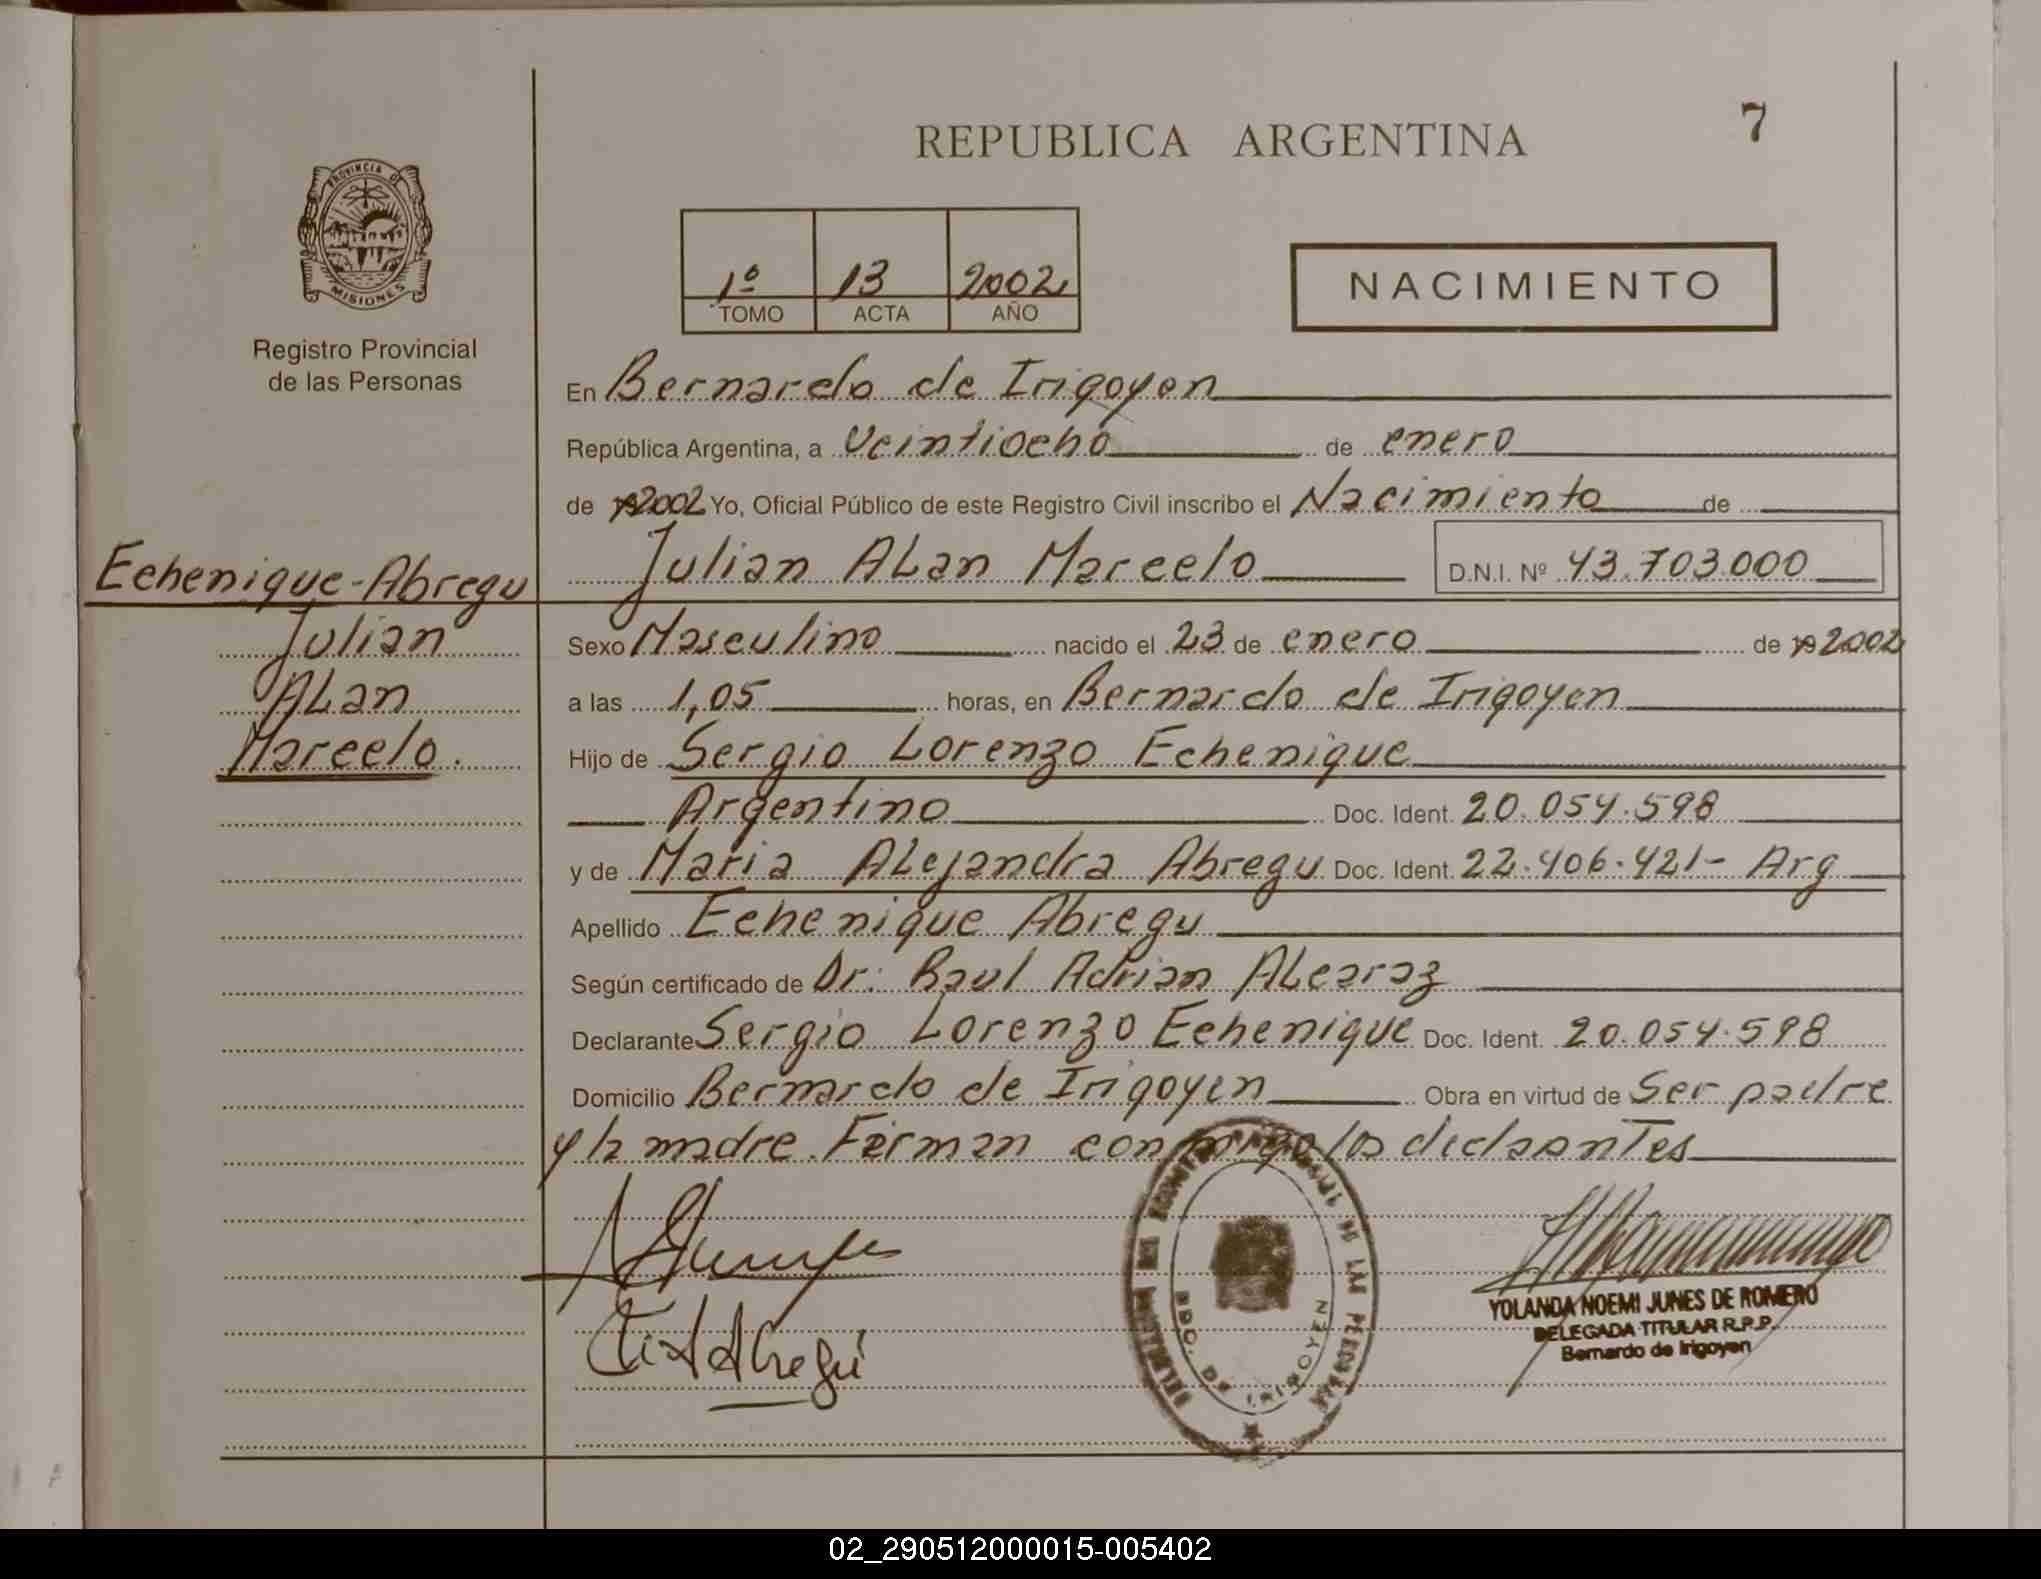 7
REPUBLICA ARGENTINA
PROVINCIA DE
MISIONES
Registro Provincial
de las Personas
1º 13 2002
TOMO ACTA AÑO
NACIMIENTO
En Bernardo de Irigoyen
República Argentina, a Veintiocho de enero
de 2002 Yo, Oficial Público de este Registro Civil inscribo el Nacimiento de
Julian ALan Marcelo D.N.I. Nº 43.703.000
Echenique-Abregu
Julian
ALan
Marcelo.
Sexo Masculino nacido el 23 de enero de 19 2002
a las 1,05 horas, en Bernardo de Irigoyen
Hijo de Sergio Lorenzo Echenique
Argentino Doc. Ident. 20.054.598
y de Maria ALejandra Abregu Doc. Ident. 22.406.421- Arg
Apellido Echenique Abregu
Según certificado de Dr: Raul Adrian ALcaraz
Declarante Sergio Lorenzo Echenique Doc. Ident. 20.054.598
Domicilio Bernardo de Irigoyen Obra en virtud de Ser padre
y la madre. Firman conmigo los declarantes
Abregú
DE LAS PERSONAS
BDO. DE IRIGOYEN
YOLANDA NOEMI JUNES DE ROMERO
DELEGADA TITULAR R.P.P.
Bernardo de Irigoyen
02_290512000015-005402